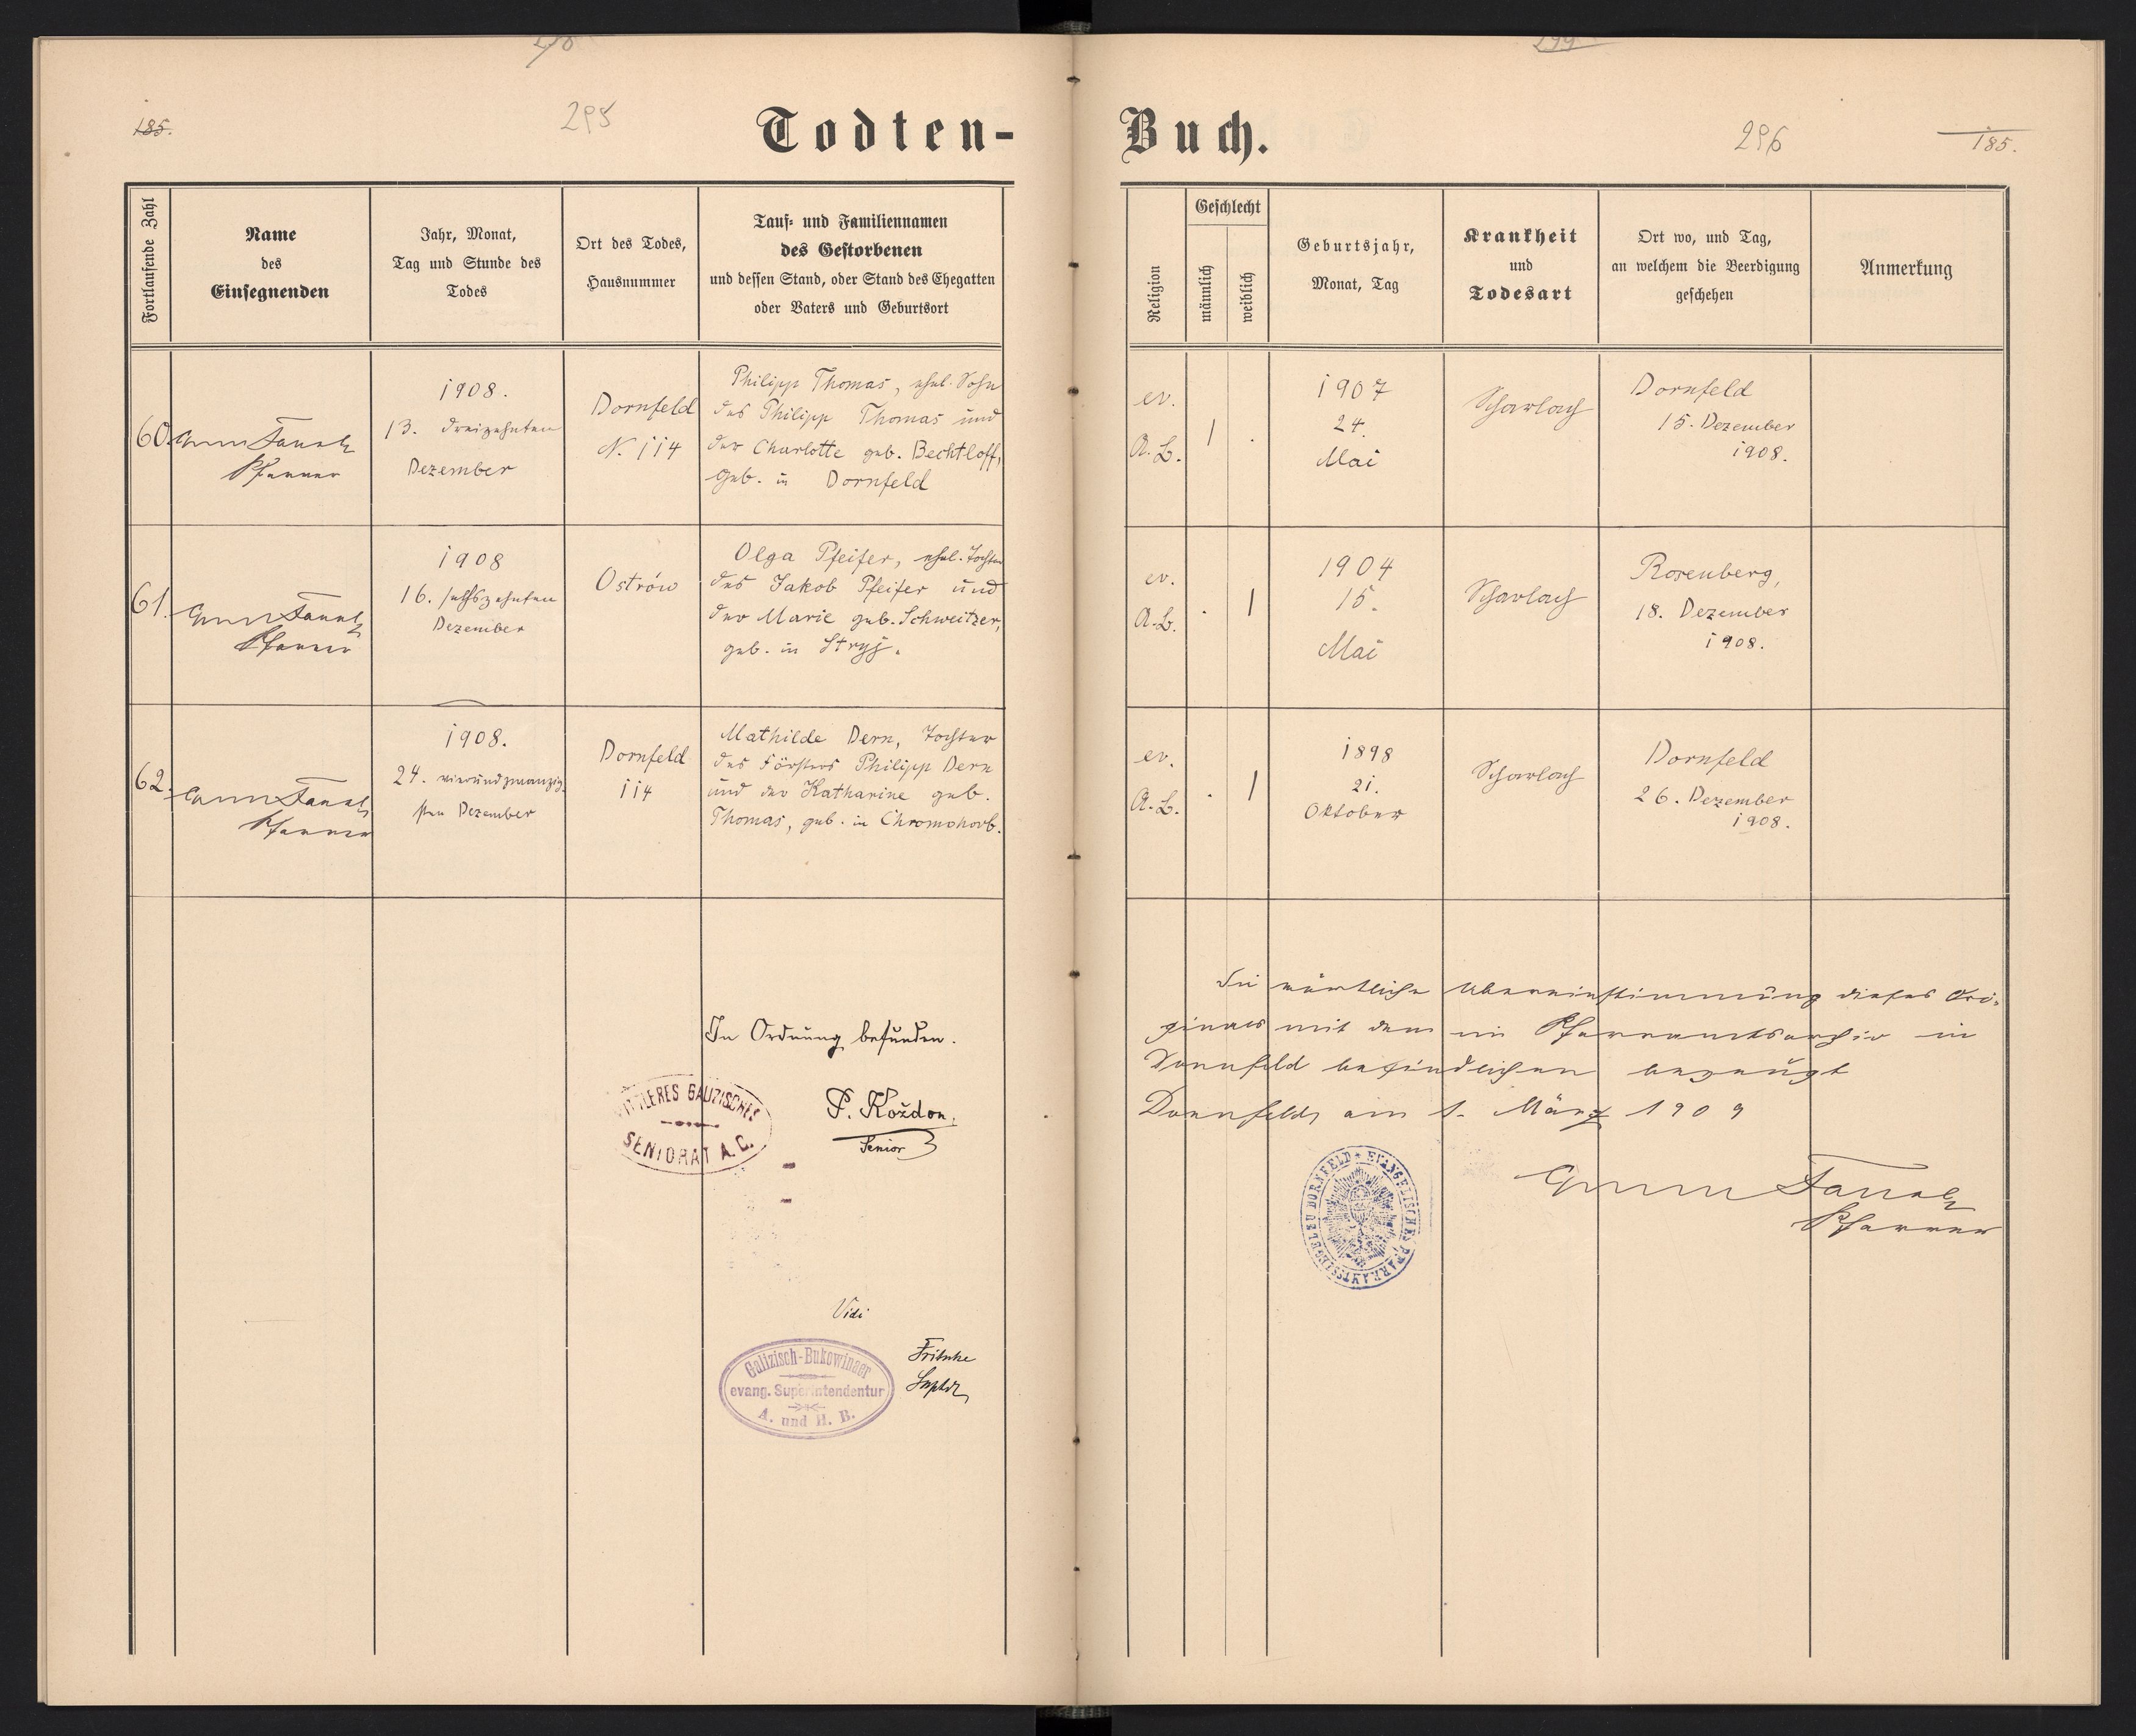 185.
295
Todten-
Buch.
296
185.
Fortlaufende Zahl
Name
des
Einsegnenden
Jahr, Monat,
Tag und Stunde des
Todes
Ort des Todes,
Hausnummer
Tauf- und Familiennamen
des Gestorbenen
und dessen Stand, oder Stand des Ehegatten
oder Vaters und Geburtsort
Religion
Geschlecht
männlich
weiblich
Geburtsjahr,
Monat, Tag
Krankheit
und
Todesart
Ort wo, und Tag,
an welchem die Beerdigung
geschehen
Anmerkung
60.
Pfarrer
1908.
13. dreizehnten
Dezember
Dornfeld
N. 114
Philipp Thomas, ehel. Sohn
des Philipp Thomas und
der Charlotte geb. Bechtloff,
geb. in Dornfeld
ev.
A. B.
1 .
1907
24.
Mai
Scharlach
Dornfeld
15. Dezember
1908.
61.
Pfarrer
1908
16. sechszehnten
Dezember
Ostrów
Olga Pfeifer, ehel. Tochter
des Jakob Pfeifer und
der Marie geb. Schweitzer,
geb. in Stryj.
ev.
A. B.
. 1
1904
15.
Mai
Scharlach
Rosenberg,
18. Dezember
1908.
62.
Pfarrer
1908.
24. vierundzwanzig-
sten Dezember
Dornfeld
114
Mathilde Dern, Tochter
des Försters Philipp Dern
und der Katharine geb.
Thomas, geb. in Chromohorb.
ev.
A. B.
. 1
1898
21.
Oktober
Scharlach
Dornfeld
26. Dezember
1908.
In Ordnung befunden.
MITTLERES GALIZISCHES
SENIORAT A. C.
P. Koždon,
Senior
Vidi
Galizisch-Bukowinaer
evang. Superintendentur
A. und H. B.
Fritsche
Suptdt
Die wörtliche Übereinstimmung dieses Ori-
ginals mit dem im Pfarramtsarchiv in
Dornfeld befindlichen bezeugt
Dornfeld, am 1. März 1909
EVANGELISCHES PFARRAMTSSIEGEL ZU DORNFELD
Pfarrer